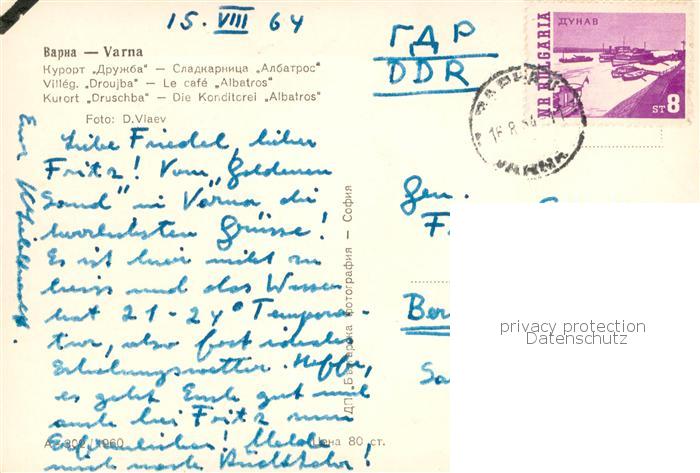 15. VIII 64
Варна — Varna
Курорт „Дружба" — Сладкарница „Албатрос"
Villég. „Droujba" — Le café „Albatros"
Kurort „Druschba" — Die Konditcrei „Albatros"
Foto: D. Vlaev
Liebe Friedel, lieber
Fritz! Vom „Goldenen
Sand" in Varna die
herrlichsten Grüsse!
Es ist hier nicht zu
heiss und das Wasser
hat 21-24° Tempera-
tur, also fast ideales
Erholungswetter. Hoffe,
es geht Euch gut und
auch bei Fritz nun
Erfreuliches! Melde
mich nach Rückkehr!
Euer
А 1960
Цена 80 ст.
ДП „Българска фотография — София
ГДР
DDR
NR BULGARIA
ДУНАВ
ST 8
ВАРНА
Gen.
F
Ber
privacy protection
Datenschutz